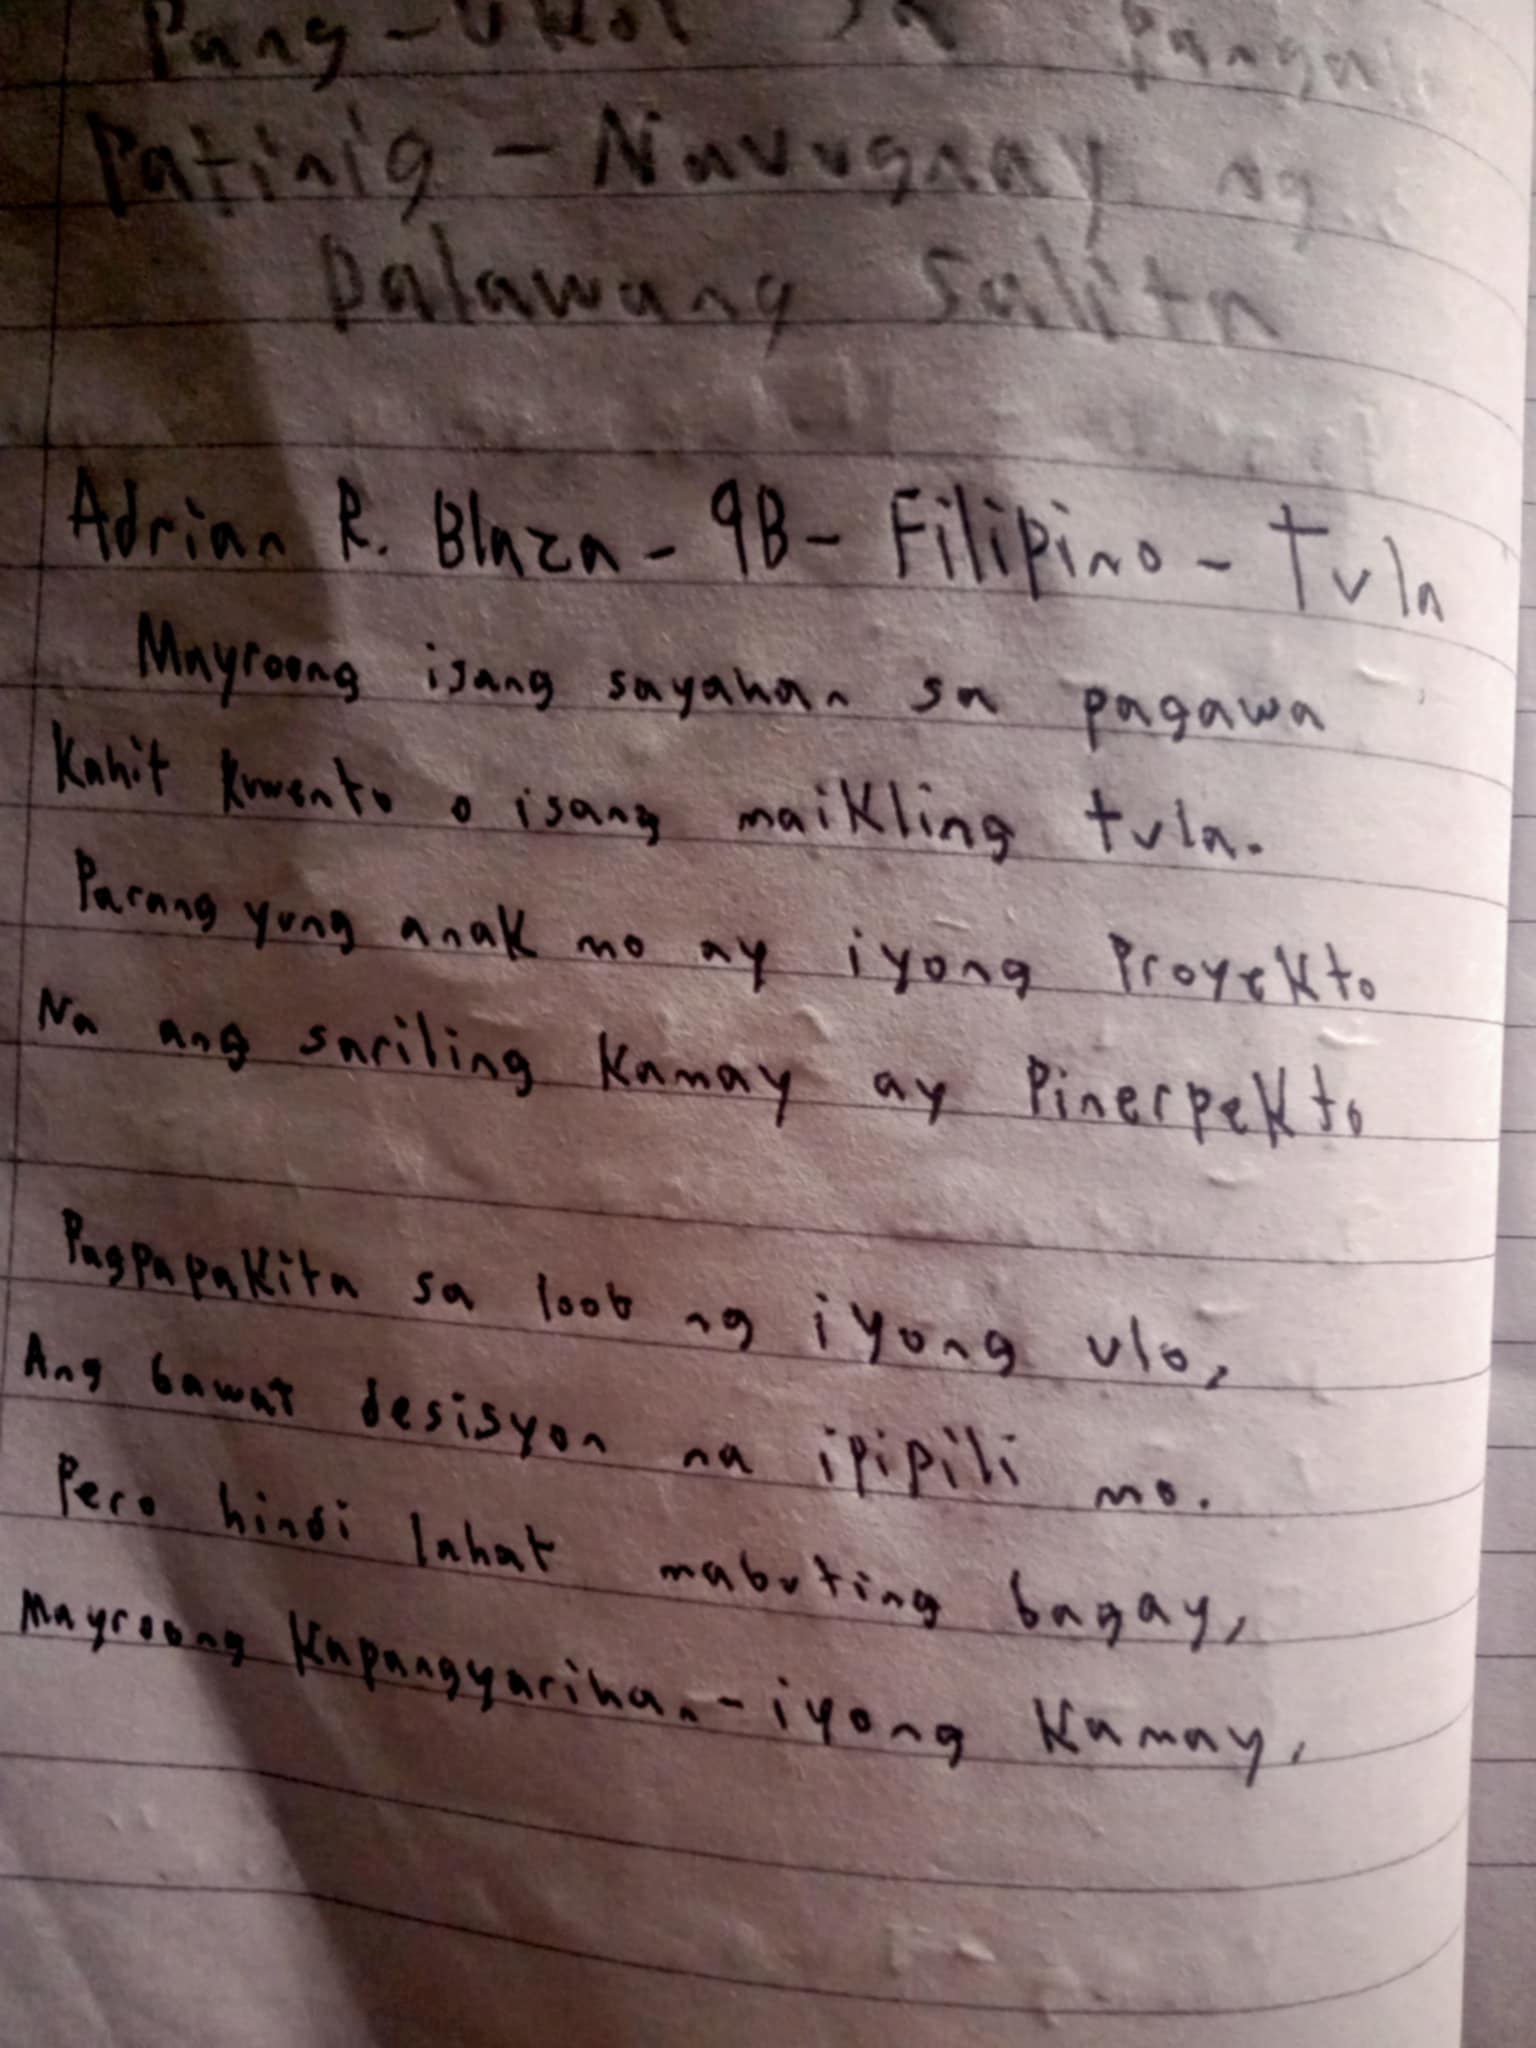 Pang-Ukol sa
Patinig - Nauugnay ng
Dalawang Salita
Adrian R. Blaza - 9B - Filipino - Tula
Mayroong isang sayahan sa pagawa
Kahit kuwento o isang maikling tula.
Parang yung anak mo ay iyong Proyekto
Na ang sariling kamay ay Pinerpekto
Pagpapakita sa loob ng iyong ulo,
Ang bawat desisyon na ipipili mo.
Pero hindi lahat mabuting bagay,
Mayroong kapangyarihan - iyong kamay,